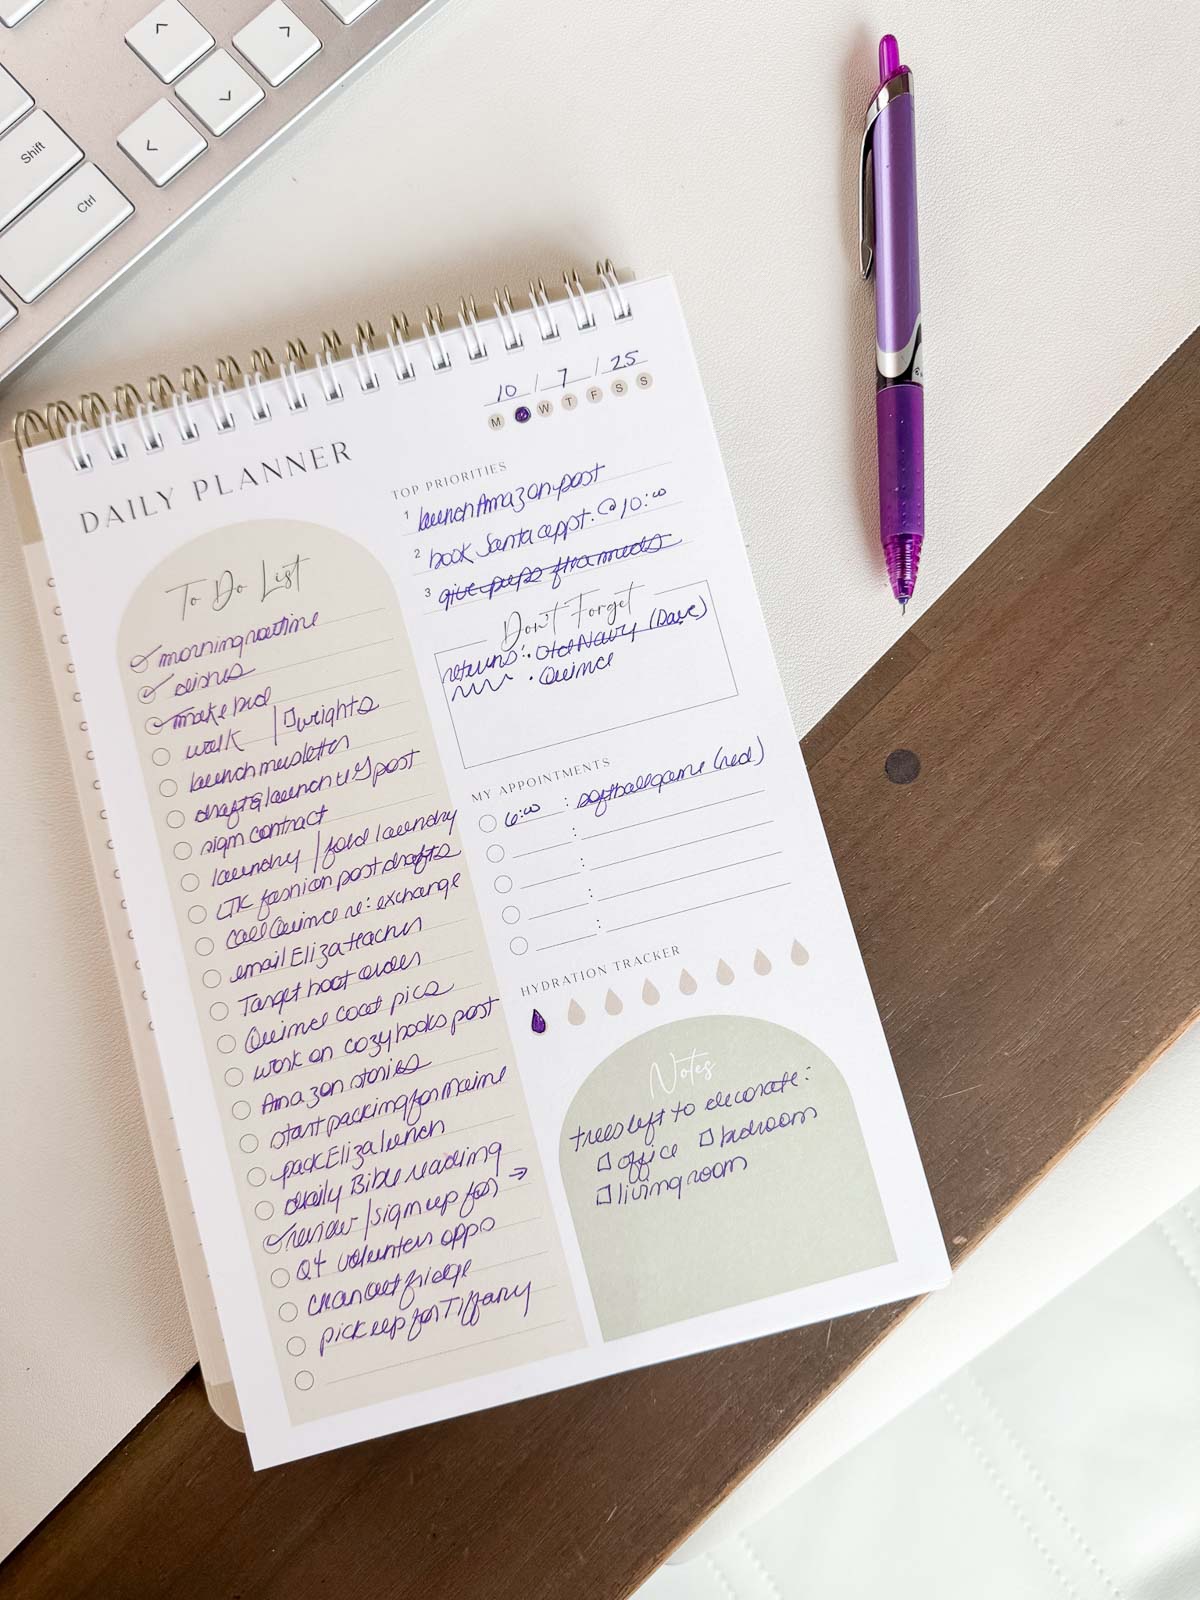 Shift
Ctrl
10 / 7 / 25
M W T F S S
DAILY PLANNER
To Do List
morning routine
dishes
make bed
walk / weights
launch newsletter
draft & launch post
sign contract
laundry / fold laundry
LTK fashion post drafts
call Quince re: exchange
email Eliza teacher
Target boot order
Quince coat pics
work on cozy books post
Amazon stories
start packing for Maine
pack Eliza lunch
daily Bible reading
review / sign up for →
Q4 volunteer opps
clean out fridge
pick up for Tiffany
TOP PRIORITIES
1 launch Amazon post
2 book Santa appt. @ 10:00
3 give pups flea meds
Don't Forget
returns: · Old Navy (Dave)
· Quince
MY APPOINTMENTS
6:00 : softball game (red)
HYDRATION TRACKER
Notes
trees left to decorate:
office bedroom
living room